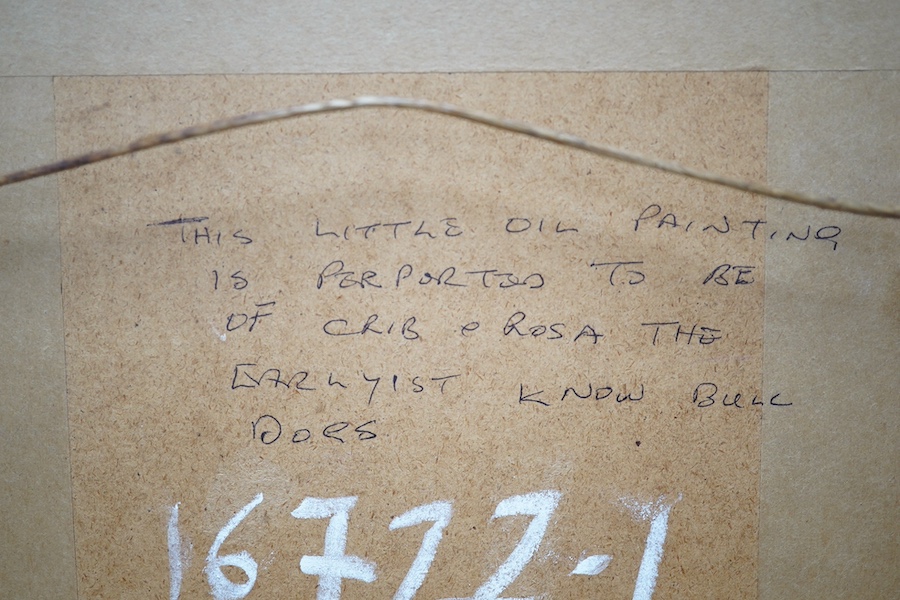 THIS LITTLE OIL PAINTING
IS PERPORTED TO BE
OF CRIB & ROSA THE
EARLYIST KNOW BULL
DOGS .